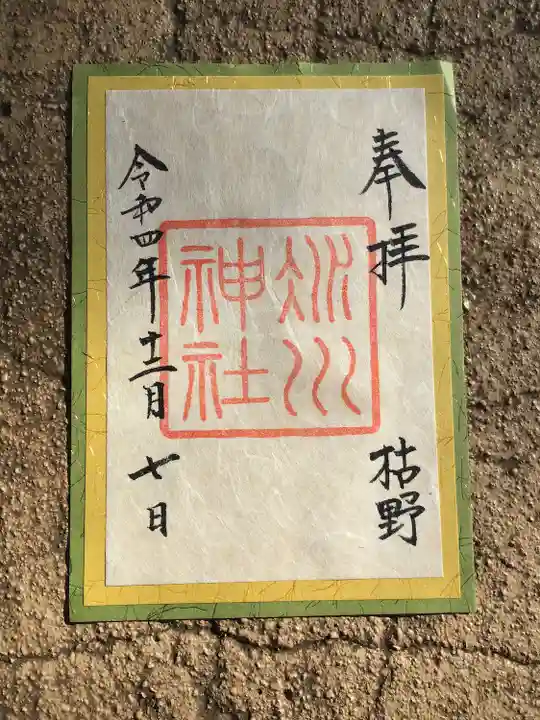 奉拝
枯野
氷川
神社
令和四年十二月七日